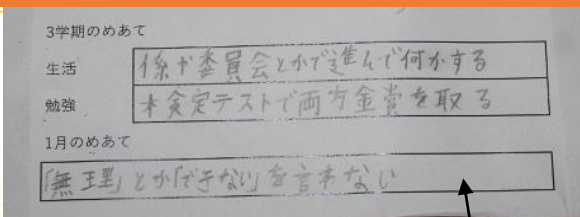 3学期のめあて
生活 係や委員会とかで進んで何かする
勉強 検定テストで両方金賞を取る
1月のめあて
「無理」とか「できない」を言わない